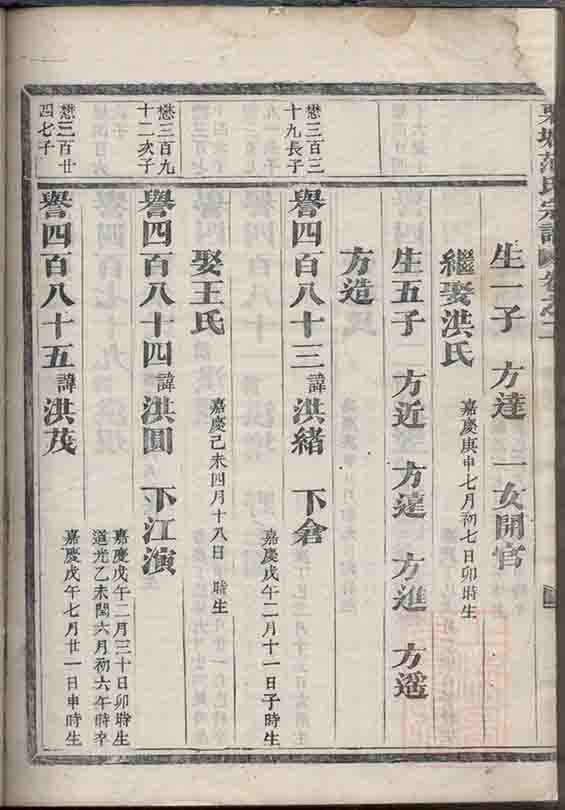 范氏宗譜 卷之二
生一子 方達 一女開官
繼娶洪氏 嘉慶庚申七月初七日卯時生
生五子 方近 方達 方進 方遥
方造
懋三百三十九長子
譽四百八十三諱洪緒 下倉 嘉慶戊午二月十一日子時生
娶王氏 嘉慶己未四月十八日 時生
懋三百九十二次子
譽四百八十四諱洪圓 下江演 嘉慶戊午二月三十日卯時生
道光乙未閏六月初六午時卒
懋三百廿四七子
譽四百八十五諱洪茂 嘉慶戊午七月廿一日申時生